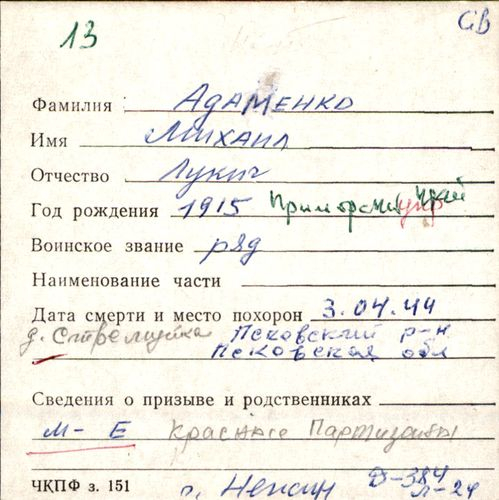 13 СВ
Фамилия АДАМЕНКО
Имя МИХАИЛ
Отчество Лукич
Год рождения 1915 Приморский край укр
Воинское звание ряд
Наименование части
Дата смерти и место похорон 3.04.44
д. Стремутка Псковский р-н
Псковская обл
Сведения о призыве и родственниках
М- Е Красные Партизаны
ЧКПФ з. 151 г. Нежин Д-384
л-24